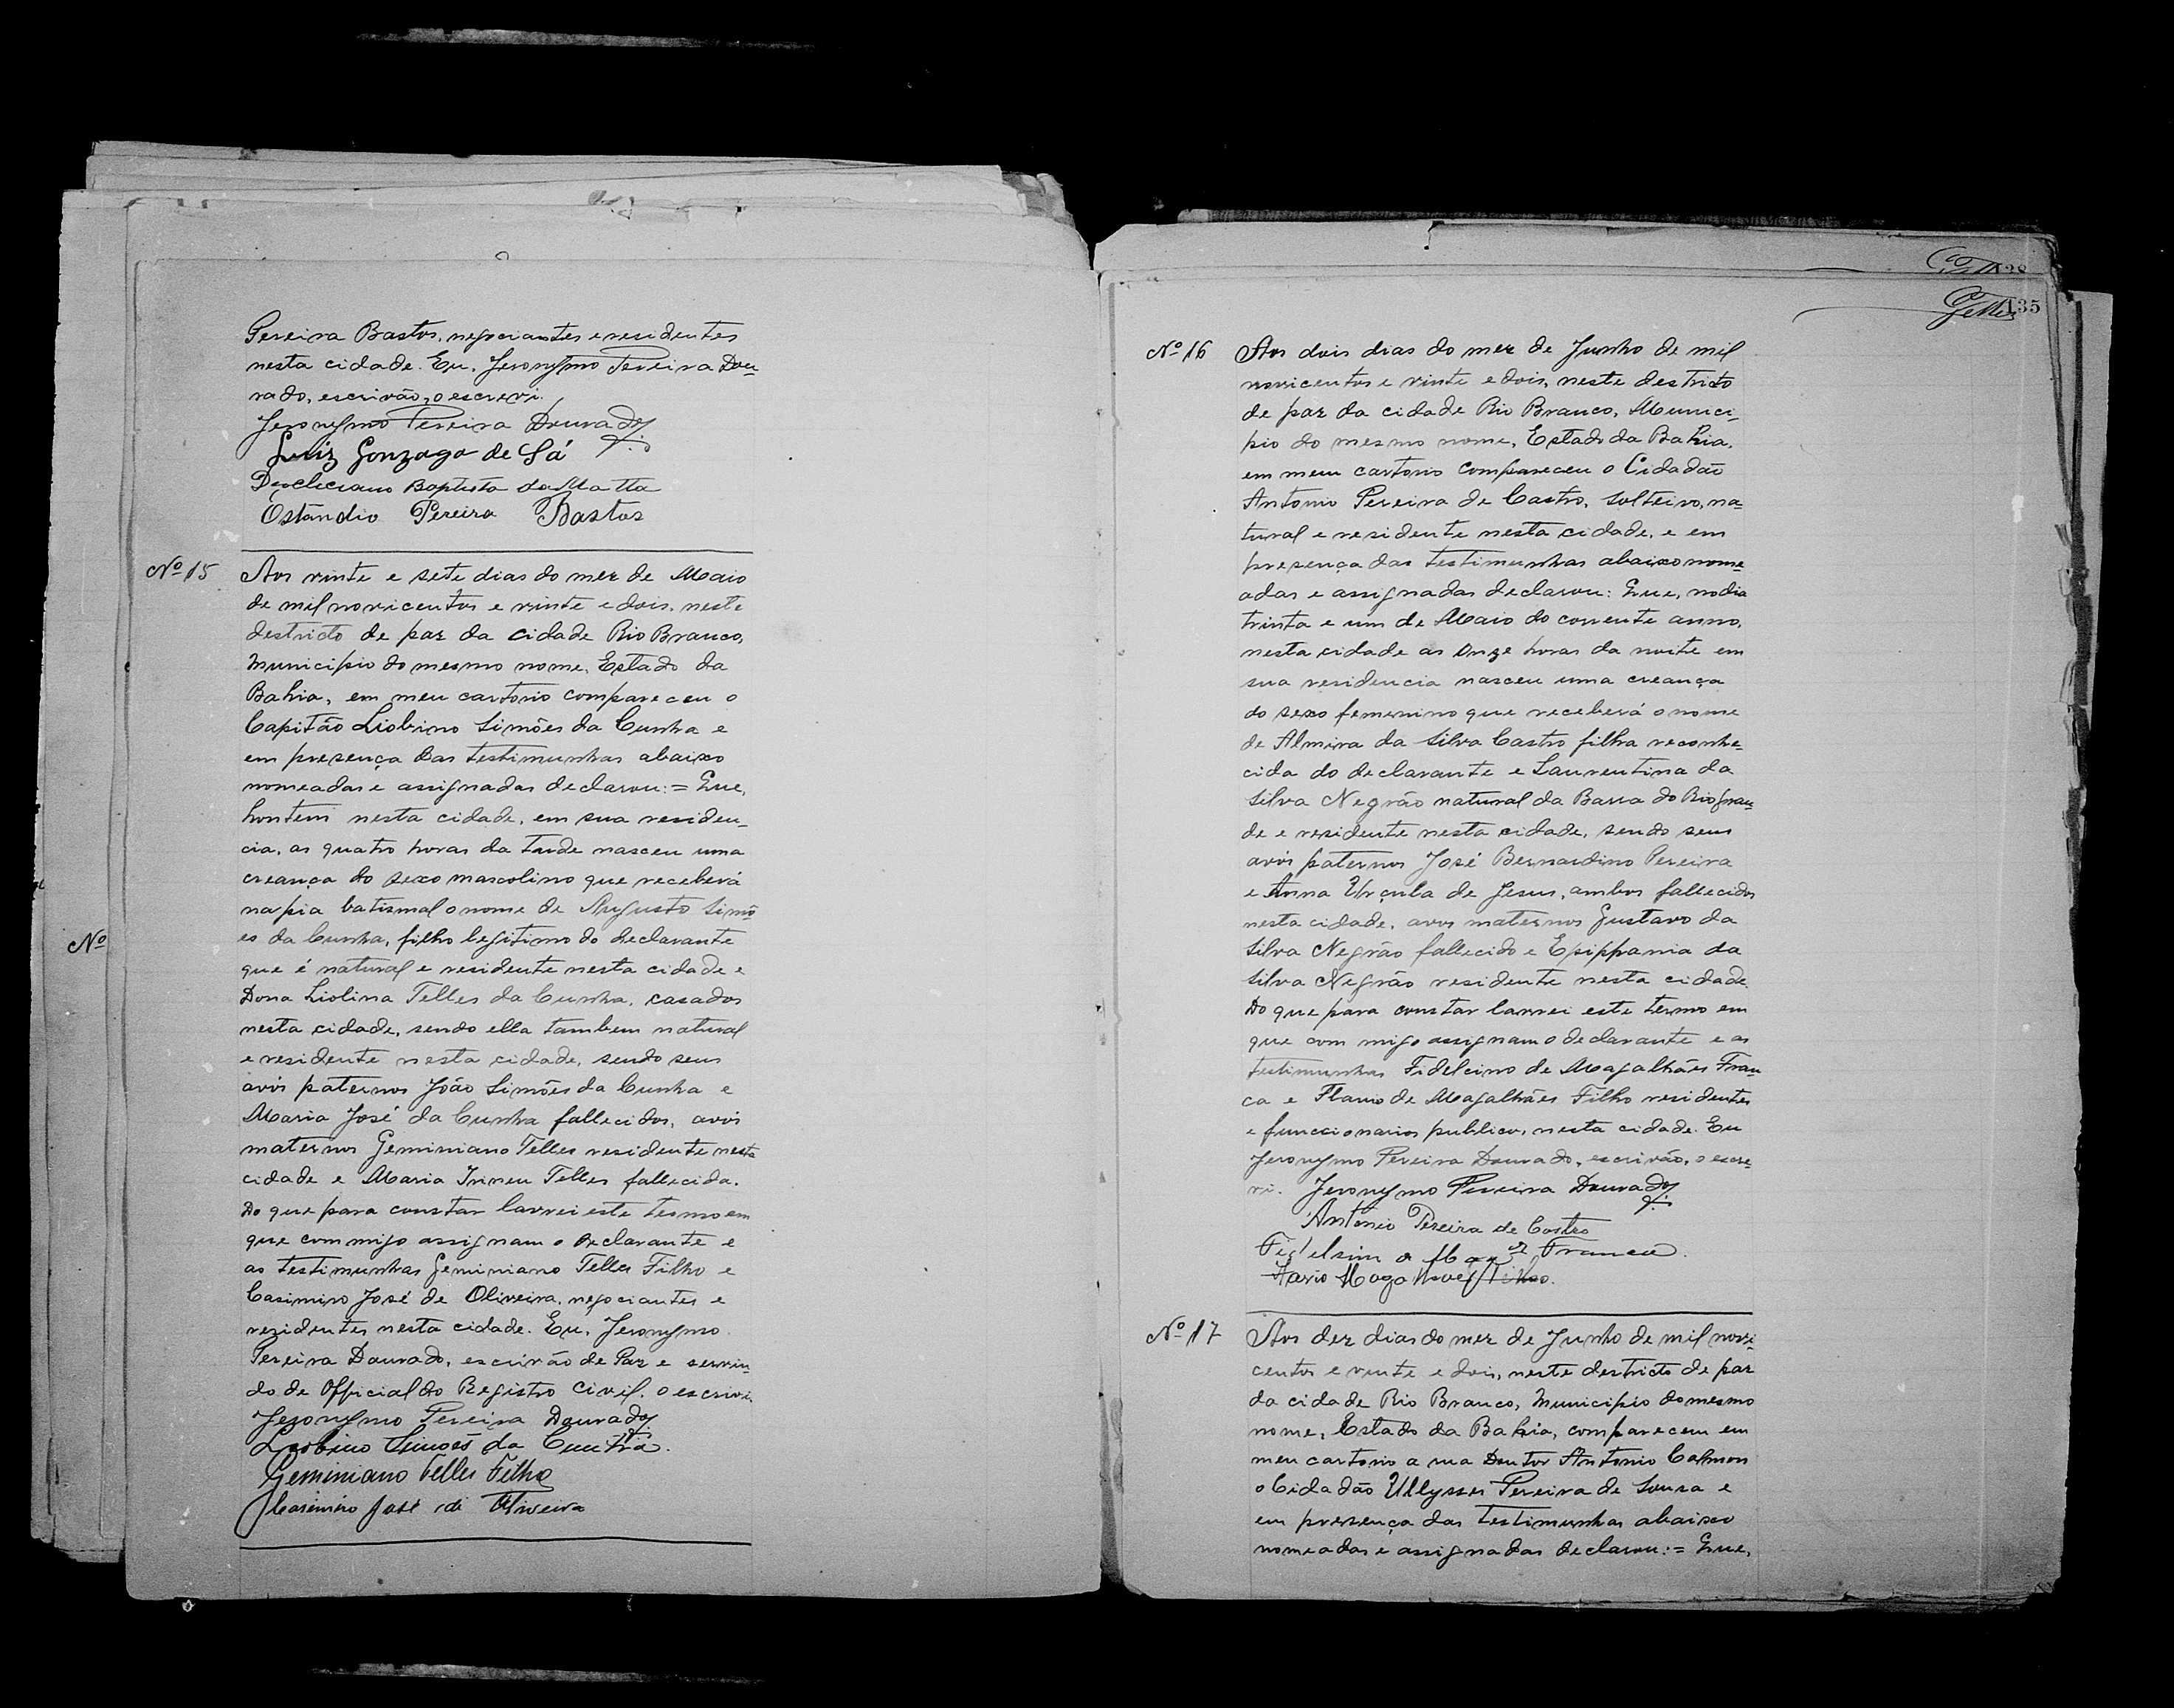 Pereira Bastos, negociantes e residentes
nesta cidade. Eu, Jeronymo Pereira Dou=
rado, escrivão, o escrevi.
Jeronymo Pereira Dourado
Luiz Gonzaga de Sá
Deocleciano Baptista da Matta
Ostãndio Pereira Bastos
Nº 15
Aos vinte e sete dias do mez de Maio
de mil novicentos e vinte e dois, neste
destricto de paz da cidade Rio Branco,
Municipio do mesmo nome, Estado da
Bahia, em meu cartorio compareceu o
Capitão Liobino Simões da Cunha e
em presença das testimunhas abaixo
nomeadas e assignadas declarou: = Que,
hontem nesta cidade, em sua residen=
cia, as quatro horas da tarde nasceu uma
creança do sexo mascolino que receberá
na pia batismal o nome de Augusto Simõ
es da Cunha, filho legitimo do declarante
que é natural e residente nesta cidade e
Dona Liolina Telles da Cunha, casados
nesta cidade, sendo ella tambem natural
e residente nesta cidade, sendo seus
avós paternos João Simões da Cunha e
Maria José da Cunha fallecidos, avós
maternos Geminiano Telles residente nesta
cidade e Maria Irineu Telles fallecida.
Do que para constar lavrei este termo em
que commigo assignam o declarante e
as testimunhas Geminiano Telles Filho e
Casimiro José de Oliveira, negociantes e
residentes nesta cidade. Eu, Jeronymo
Pereira Dourado, escrivão de Paz e servin=
do de Official do Registro Civil, o escrivi.
Jeronymo Pereira Dourado
Liobino Simoes da Cunha.
Geminiano Telles Filho
Casimiro José de Oliveira
Nº
135
Nº 16
Aos dois dias do mez de Junho de mil
novicentos e vinte e dois, neste destricto
de paz da cidade Rio Branco, Munici=
pio do mesmo nome, Estado da Bahia,
em meu cartorio compareceu o Cidadão
Antonio Pereira de Castro, solteiro, na=
tural e residente nesta cidade, e em
presença das testimunhas abaixo nome=
adas e assignadas declarou: Que, no dia
trinta e um de Maio do corrente anno,
nesta cidade as onze horas da noite em
sua residencia nasceu uma creança
do sexo femenino que receberá o nome
de Almira da Silva Castro filha reconhe=
cida do declarante e Laurentina da
Silva Negrão natural da Barra do Rio Gran
de e residente nesta cidade, sendo seus
avós paternos José Bernardino Pereira
e Anna Urçula de Jesus, ambos fallecidos
nesta cidade, avos maternos Gustavo da
Silva Negrão fallecido e Epippania da
Silva Negrão residente nesta cidade.
Do que para constar lavrei este termo em
que com migo assignam o declarante e as
testimunhas Fidelcino de Magalhães Fran=
ca e Flavio de Magalhães Filho residentes
e funccionarios publicos, nesta cidade. Eu
Jeronymo Pereira Dourado, escrivão, o escre=
vi. Jeronymo Pereira Dourado
Antonio Pereira de Castro
Franca.
Filho.
Nº 17
Aos dez dias do mez de Junho de mil novi=
centos e vinte e dois, neste destricto de paz
da cidade Rio Branco, Municipio do mesmo
nome, Estado da Bahia, compareceu em
meu cartorio a rua Doutor Antonio Calmon
o Cidadão Ullysses Pereira de Sousa e
em presença das testimunhas abaixo
nomeadas e assignadas declarou: = Que,